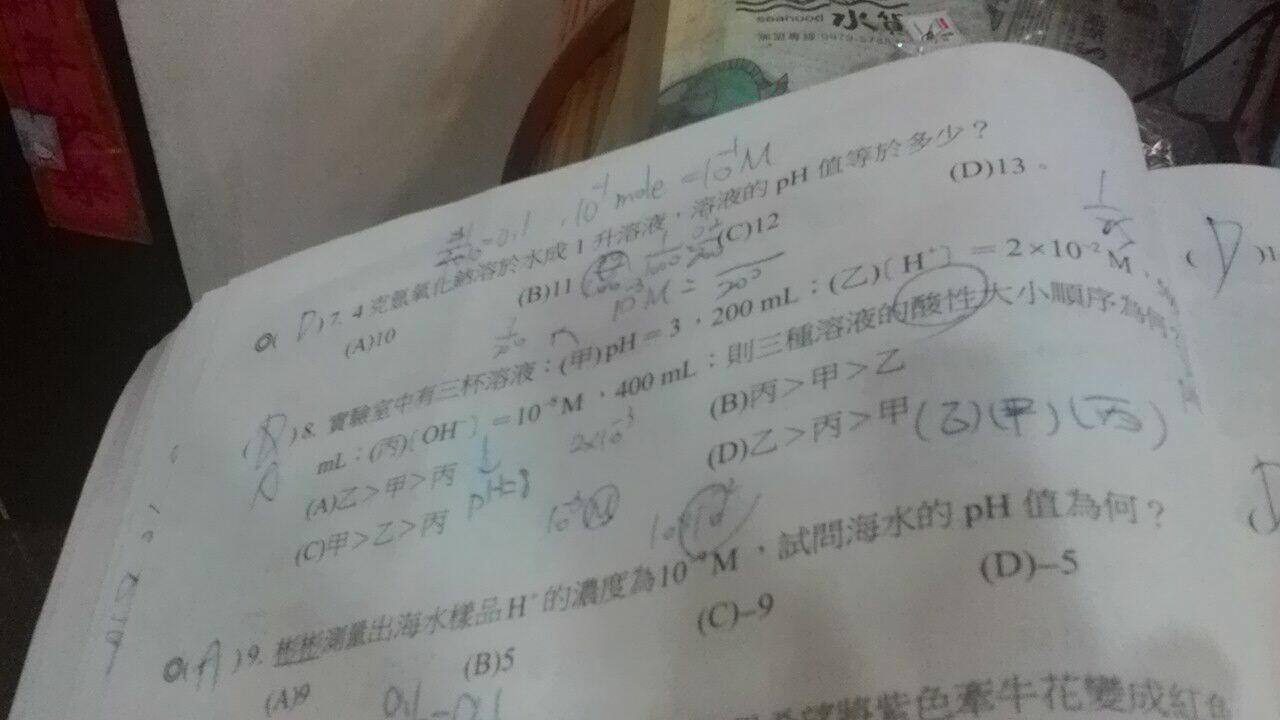 seahood 水貨
10⁻¹ mole = 10⁻¹ M
◎( D )7. 4克氫氧化鈉溶於水成1升溶液，溶液的 pH 值等於多少？
(A)10 (B)11 (C)12 (D)13。
10⁻³M =
)8. 實驗室中有三杯溶液：(甲)pH＝3，200 mL；(乙)〔H⁺〕＝2×10⁻²M，
mL；(丙)〔OH⁻〕＝10⁻⁸M，400 mL；則三種溶液的酸性大小順序為何？
(A)乙＞甲＞丙 (B)丙＞甲＞乙
(C)甲＞乙＞丙 (D)乙＞丙＞甲 (乙)(甲)(丙)
2×10⁻³
◎( A )9. 彬彬測量出海水樣品H⁺的濃度為10⁻⁹M，試問海水的 pH 值為何？
(A)9 (B)5 (C)–9 (D)–5
將紫色牽牛花變成紅色